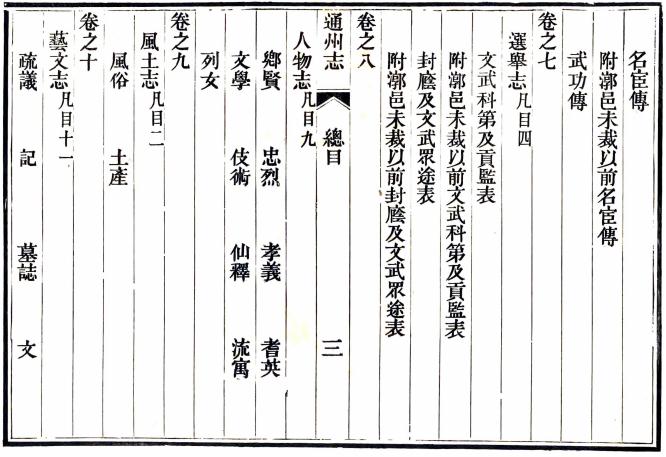 名宦傳
附漷邑未裁以前名宦傳
武功傳
卷之七
選舉志凡目四
文武科第及貢監表
附漷邑未裁以前文武科第及貢監表
封廕及文武眾途表
附漷邑未裁以前封廕及文武眾途表
卷之八
通州志 總目 三
人物志凡目九
鄉賢 忠烈 孝義 耆英
文學 伎術 仙釋 流寓
列女
卷之九
風土志凡目二
風俗 土產
卷之十
藝文志凡目十一
疏議 記 墓誌 文